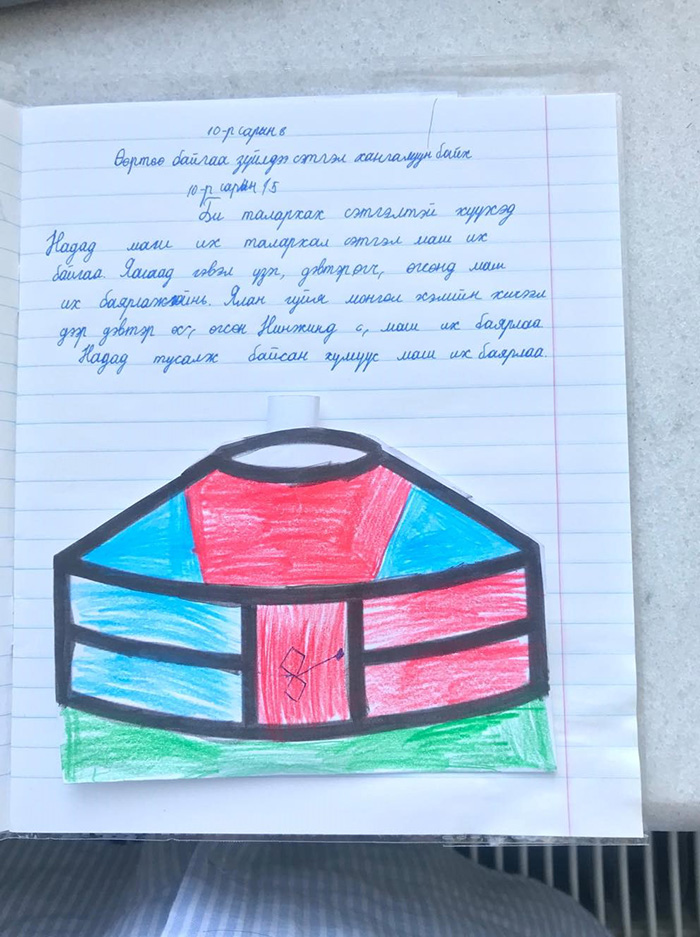 10-р сарын 8
Өөртөө байгаа зүйлдээ сэтгэл хангалуун байх
10-р сарын 15
Би талархах сэтгэлтэй хүүхэд
Надад маш их талархал сэтгэл маш их
байгаа. Яагаад гэвэл үзэг, дэвтэр өгсөнд маш
их баярлаж байна. Ялангуяа монгол хэлийн хичээл
дээр дэвтэр өгсөн Нинжинд маш их баярлаа.
Надад тусалж байсан хүмүүс маш их баярлаа.